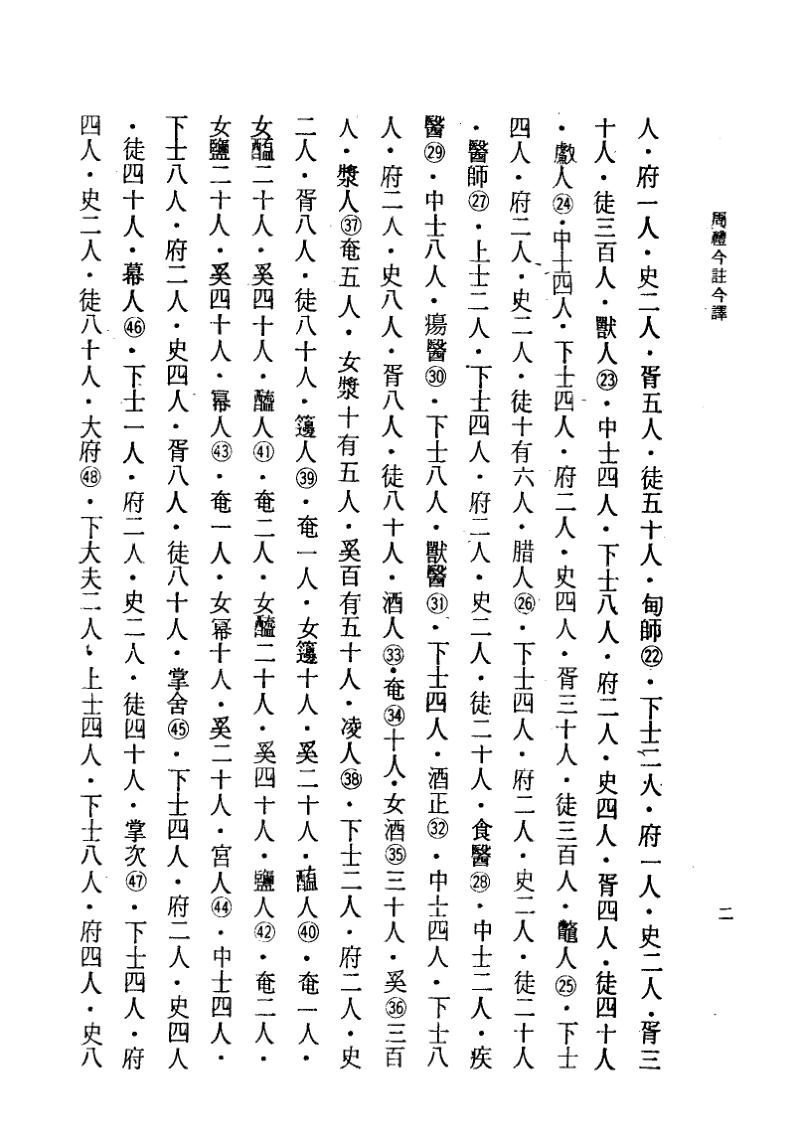 周禮今註今譯
二
人・府一人・史二人・胥五人・徒五十人・甸師㉒・下士二人・府一人・史二人・胥三
十人・徒三百人・獸人㉓・中士四人・下士八人・府二人・史四人・胥四人・徒四十人
・䱷人㉔・中士四人・下士四人・府二人・史四人・胥三十人・徒三百人・鼈人㉕・下士
四人・府二人・史二人・徒十有六人・腊人㉖・下士四人・府二人・史二人・徒二十人
・醫師㉗・上士二人・下士四人・府二人・史二人・徒二十人・食醫㉘・中士二人・疾
醫㉙・中士八人・瘍醫㉚・下士八人・獸醫㉛・下士四人・酒正㉜・中士四人・下士八
人・府二人・史八人・胥八人・徒八十人・酒人㉝・奄㉞十人・女酒㉟三十人・奚㊱三百
人・漿人㊲奄五人・女漿十有五人・奚百有五十人・凌人㊳・下士二人・府二人・史
二人・胥八人・徒八十人・籩人㊴・奄一人・女籩十人・奚二十人・醢人㊵・奄一人・
女醢二十人・奚四十人・醯人㊶・奄二人・女醯二十人・奚四十人・鹽人㊷・奄二人・
女鹽二十人・奚四十人・冪人㊸・奄一人・女冪十人・奚二十人・宮人㊹・中士四人・
下士八人・府二人・史四人・胥八人・徒八十人・掌舍㊺・下士四人・府二人・史四人
・徒四十人・幕人㊻・下士一人・府二人・史二人・徒四十人・掌次㊼・下士四人・府
四人・史二人・徒八十人・大府㊽・下大夫二人・上士四人・下士八人・府四人・史八